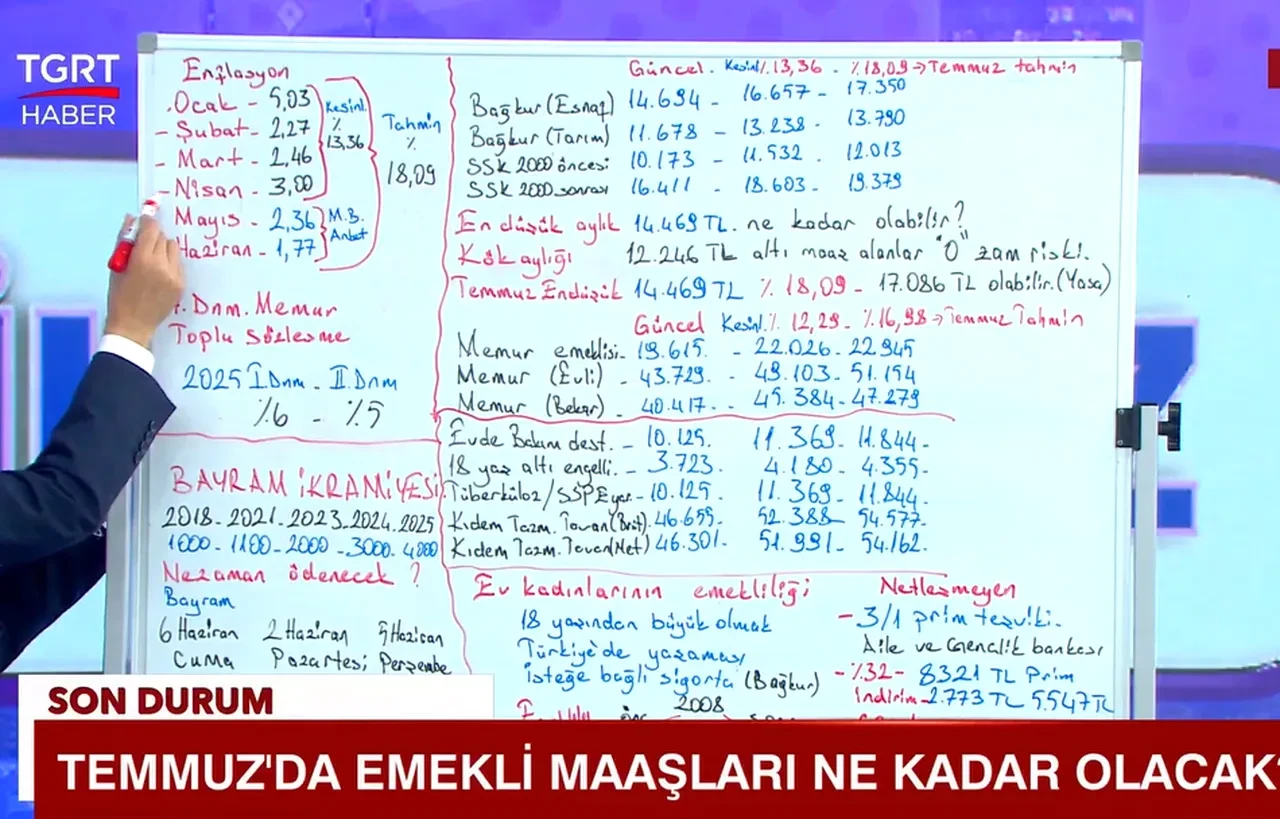 TGRT
HABER
Enflasyon
Ocak - 5,03
- Şubat - 2,27
- Mart - 2,46
- Nisan - 3,00
Mayıs - 2,36
Haziran - 1,77
Kesinl.
%
13,36
M.B.
Anket
Tahmin
%
18,09
Dnm. Memur
Toplu Sözleşme
2025 I.Dnm - II.Dnm
%6 - %5
BAYRAM İKRAMİYESİ
2018-2021-2023-2024-2025
1000-1100-2000-3000-4000
Ne zaman ödenecek ?
Bayram
6 Haziran 2 Haziran 5 Haziran
Cuma Pazartesi Perşembe
Güncel - Kesinl. % 13,36 - % 18,09 → Temmuz tahmin
Bağkur (Esnaf) 14.694 - 16.657 - 17.350
Bağkur (Tarım) 11.678 - 13.238 - 13.790
SSK 2000 öncesi 10.173 - 11.532 - 12.013
SSK 2000 sonrası 16.411 - 18.603 - 19.379
En düşük aylık 14.469 TL. ne kadar olabilir?
Kök aylığı 12.246 TL altı maaş alanlar "0" zam riski.
Temmuz En düşük 14.469 TL % 18,09 - 17.086 TL olabilir. (Yasa)
Güncel Kesinl. % 12,29 - % 16,98 → Temmuz Tahmin
Memur emeklisi - 19.615. - 22.026 - 22.945
Memur (Evli) - 43.729. - 49.103 - 51.154
Memur (Bekar) - 40.417 - - 45.384 - 47.279
Evde Bakım dest. - 10.125. 11.369 - 11.844 -
18 yaş altı engelli. - 3.723. 4.180 - 4.355 -
Tüberküloz / SSPE yar. - 10.125 - 11.369 - 11.844 -
Kıdem Tazm. Tavan (Brüt) 46.655 - 52.388 - 54.577 -
Kıdem Tazm. Tavan (Net) 46.301 - 51.991 - 54.162 -
Ev kadınlarının emekliliği
18 yaşından büyük olmak
Türkiye'de yaşaması
isteğe bağlı sigorta (Bağkur)
2008
Netleşmeyen
- 3/1 prim teşviki.
Aile ve Gençlik bankası
- %32 - 8321 TL Prim
İndirim - 2.773 TL 5.547 TL
SON DURUM
TEMMUZ'DA EMEKLİ MAAŞLARI NE KADAR OLACAK?